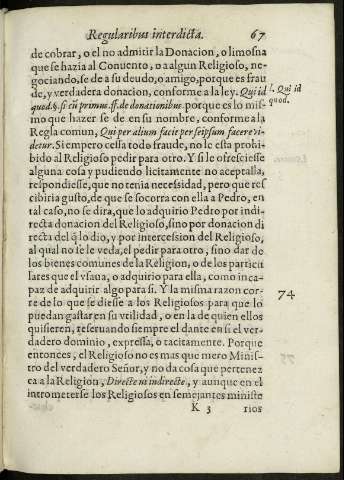 Regularibus interdicta. 67
de cobrar, o el no admitir la Donacion, o limosna
que se hazia al Conuento, o a algun Religioso, ne-
gociando, se de a su deudo, o amigo, porque es frau
de, y verdadera donacion, conforme a la ley. Qui id
quod. §. si cũ primus. ff. de donationibus. porque es lo mis-
l. Qui id
quod.
mo que hazer se de en su nombre, conforme a la
Regla comun, Qui per alium facit per seipsum facere vi-
detur. Si empero cessa todo fraude, no le esta prohi
bido al Religioso pedir para otro. Y si le ofreciesse
alguna cosa y pudiendo licitamente no aceptalla,
respondiesse, que no tenia necessidad, pero que res
cibiria gusto, de que se socorra con ella a Pedro, en
tal caso, no se dira, que lo adquirio Pedro por indi-
recta donacion del Religioso, sino por donacion di
recta del q̃ lo dio, y por intercession del Religioso,
al qual no se le veda, el pedir para otro, sino dar de
los bienes comunes de la Religion, o de los particu
lares que el vsaua, o adquirio para ella, como inca-
paz de adquirir algo para si. Y la misma razon cor-
74
re de lo que se diesse a los Religiosos para que lo
puedan gastar en su vtilidad, o en la de quien ellos
quisieren, reseruando siempre el dante en si el ver-
dadero dominio, expressa, o tacitamente. Porque
entonces, el Religioso no es mas que mero Minis-
tro del verdadero Señor, y no da cosa que pertenez
ca a la Religion, Directe ni indirecte, y aunque en el
intrometerse los Religiosos en semejantes ministe
K 3 rios